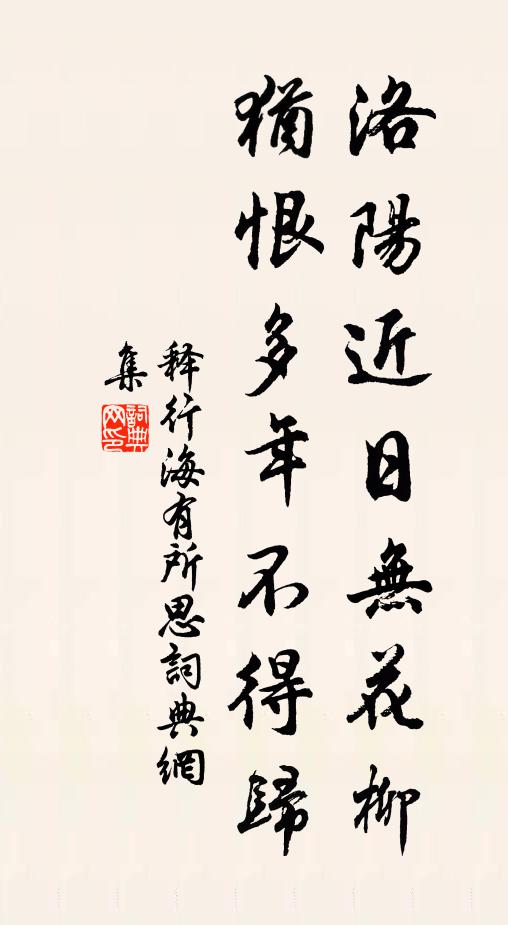 洛陽近日無花柳
猶恨多年不得歸
释行海有所思詞典網
集
詞典网印